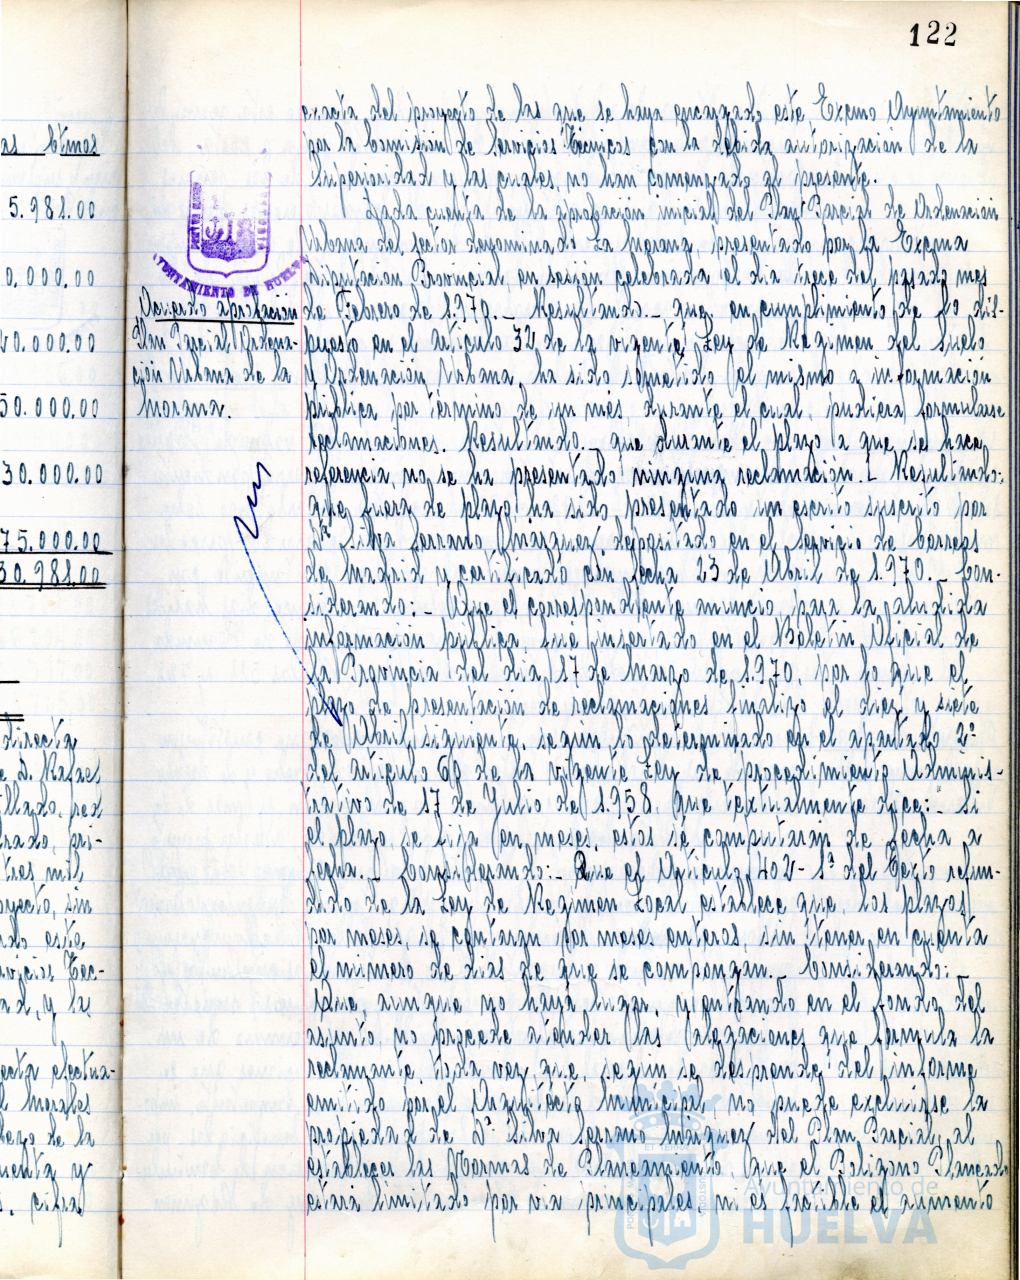 122
as Ctmos
5.981.00
0.000.00
20.000.00
50.000.00
30.000.00
75.000.00
30.981.00
directa
e D. Rafael
llado, por
tres mil
oyecto, sin
ado este
vicios Tec-
ad, y la
ecta efectua-
l Morales
uenta y
AYUNTAMIENTO DE HUELVA
Acuerdo aprobación
Plan Parcial Ordena-
ción Urbana de la
Morana.
exacta del proyecto de las que se haya encargado este Excmo Ayuntamiento
por la Comisión de Servicios Técnicos con la debida autorización de la
Superioridad y las cuales, no han comenzado al presente.
Dada cuenta de la aprobación inicial del Plan Parcial de Ordenación
Urbana del sector denominado La Morana, presentado por la Excma
Diputación Provincial, en sesión celebrada el día trece del pasado mes
de Febrero de 1.970.- Resultando.- que en cumplimiento de lo dis-
puesto en el artículo 32 de la vigente Ley de Régimen del Suelo
y Ordenación Urbana, ha sido sometido el mismo a información
pública por término de un mes, durante el cual, pudiera formularse
reclamaciones. Resultando. que durante el plazo a que se hace
referencia, no se ha presentado ninguna reclamación.- Resultando:
que fuera de plazo, ha sido presentado un escrito suscrito por
Dª Silva Serrano Marquez, depositado en el Servicio de Correos
de Madrid y certificado con fecha 23 de Abril de 1.970.- Con-
siderando:- Que el correspondiente anuncio para la aludida
información pública, fue insertado en el Boletín Oficial de
la Provincia del día 17 de marzo de 1.970, por lo que el
plazo de presentación de reclamaciones finalizo el diez y siete
de Abril siguiente, según lo determinado en el apartado 2º
del artículo 60 de la vigente Ley de procedimiento Adminis-
trativo de 17 de Julio de 1.958 que textualmente dice:- Si
el plazo se fija en meses, estos se computaran de fecha a
fecha.- Considerando:- Que el Artículo 402-1ª del Texto refun-
dido de la Ley de Régimen Local establece que, los plazos
por meses, se contaran por meses enteros, sin tener en cuenta
el número de dias de que se compongan.- Considerando:-
Que, aunque no haya lugar, y entrando en el fondo del
asunto no procede atender las alegaciones que formula la
reclamante, toda vez que, según se desprende del informe
emitido por el Arquitecto municipal, no puede excluirse la
propiedad de Dª Silva Serrano Marquez del Plan Parcial, al
establecer las Normas de Planeamiento que el Polígono Planeado
estará limitado por vía principales, ni es factible el aumento
Ayuntamiento de
HUELVA